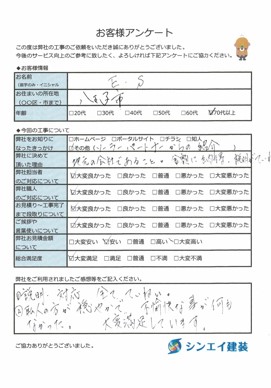 お客様アンケート
この度は弊社の工事のご依頼をいただき誠にありがとうございました。
今後のサービス向上のご参考に致したく、よろしければ下記アンケートにご協力ください。
◆お客様情報
お名前
(苗字のみ・イニシャル
E.S
お住まいの所在地
(〇〇区・市まで)
八王子市
年齢 □20代 □30代 □40代 □50代 □60代 ☑70代以上
◆今回の工事について
弊社をお知りに
なったきっかけ
□ホームページ □ポータルサイト □チラシ □知人
☑その他(
からの紹介 )
弊社に決めて
頂いた理由
地元の会社であること。
弊社担当者
のご対応について
☑大変良かった □良かった □普通 □悪かった □大変悪かった
弊社職人
のご対応について
☑大変良かった □良かった □普通 □悪かった □大変悪かった
お見積り~工事完了
まで段取りについて
☑大変良かった □良かった □普通 □悪かった □大変悪かった
ご挨拶や
言葉使いについて
☑大変良かった □良かった □普通 □悪かった □大変悪かった
弊社お見積金額
について
□大変安い ☑安い □普通 □高い □大変高い
総合満足度 ☑大変満足 □満足 □普通 □不満 □大変不満
弊社をご利用されましたご感想等をご記入ください。
説明、対応 全てていねい。
方が穏やかで 不愉快な事が何も
なかった。 大変満足しています。
ご協力ありがとうございました。
シンエイ建装